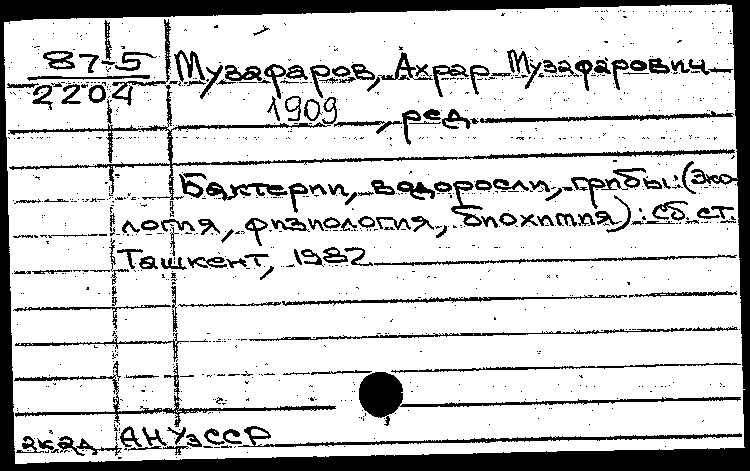 87-5
2204
Музафаров, Ахрар Музафарович
1909
, ред.
Бактерии, водоросли, грибы: (эко-
логия, физиология, биохимия): сб. ст.
Ташкент, 1982
2к2д АН УзССР